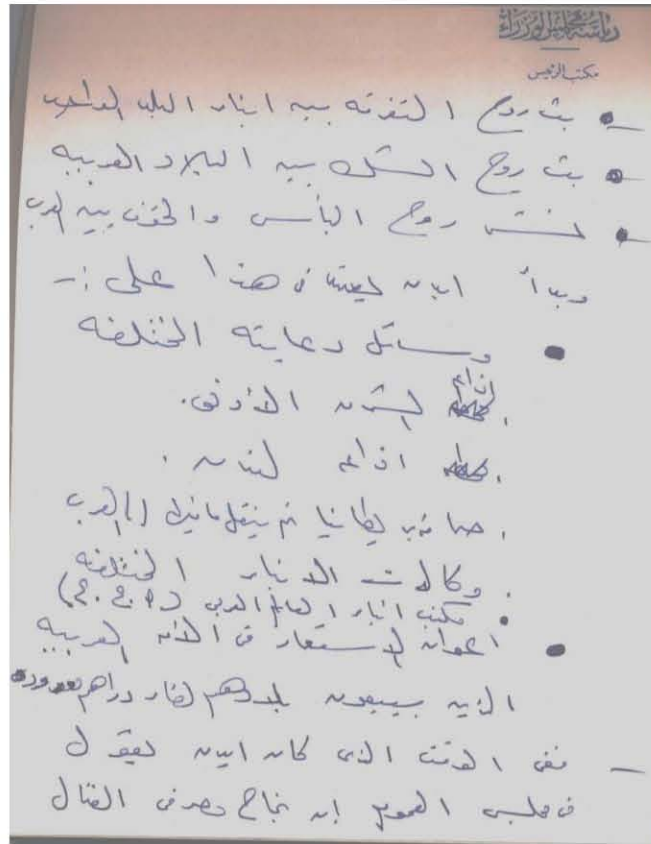 رياسة مجلس الوزراء
مكتب الرئيس
- بث روح التفرقه بين ابناء البلد الواحد
- بث روح الشك بين البلاد العربيه
- روح اليأس والخوف بين العرب
وبدأ ايدن يعتمد فى هذا على :-
وسائل دعايته المختلفه
. اذاعة الشرق الأدنى.
. اذاعة لندن .
. صحافة بريطانيا ثم ينقل مافيها الى العرب
. وكالات الانباء المختلفه
. مكتب انباء العالم العربى
اعوان الاستعمار فى الأمه العربيه
الذين يبيعون بلادهم لقاء دراهم معدوده
- ففى الوقت الذى كان ايدن يقول
فى مجلس العموم إن نجاح مصر فى القتال